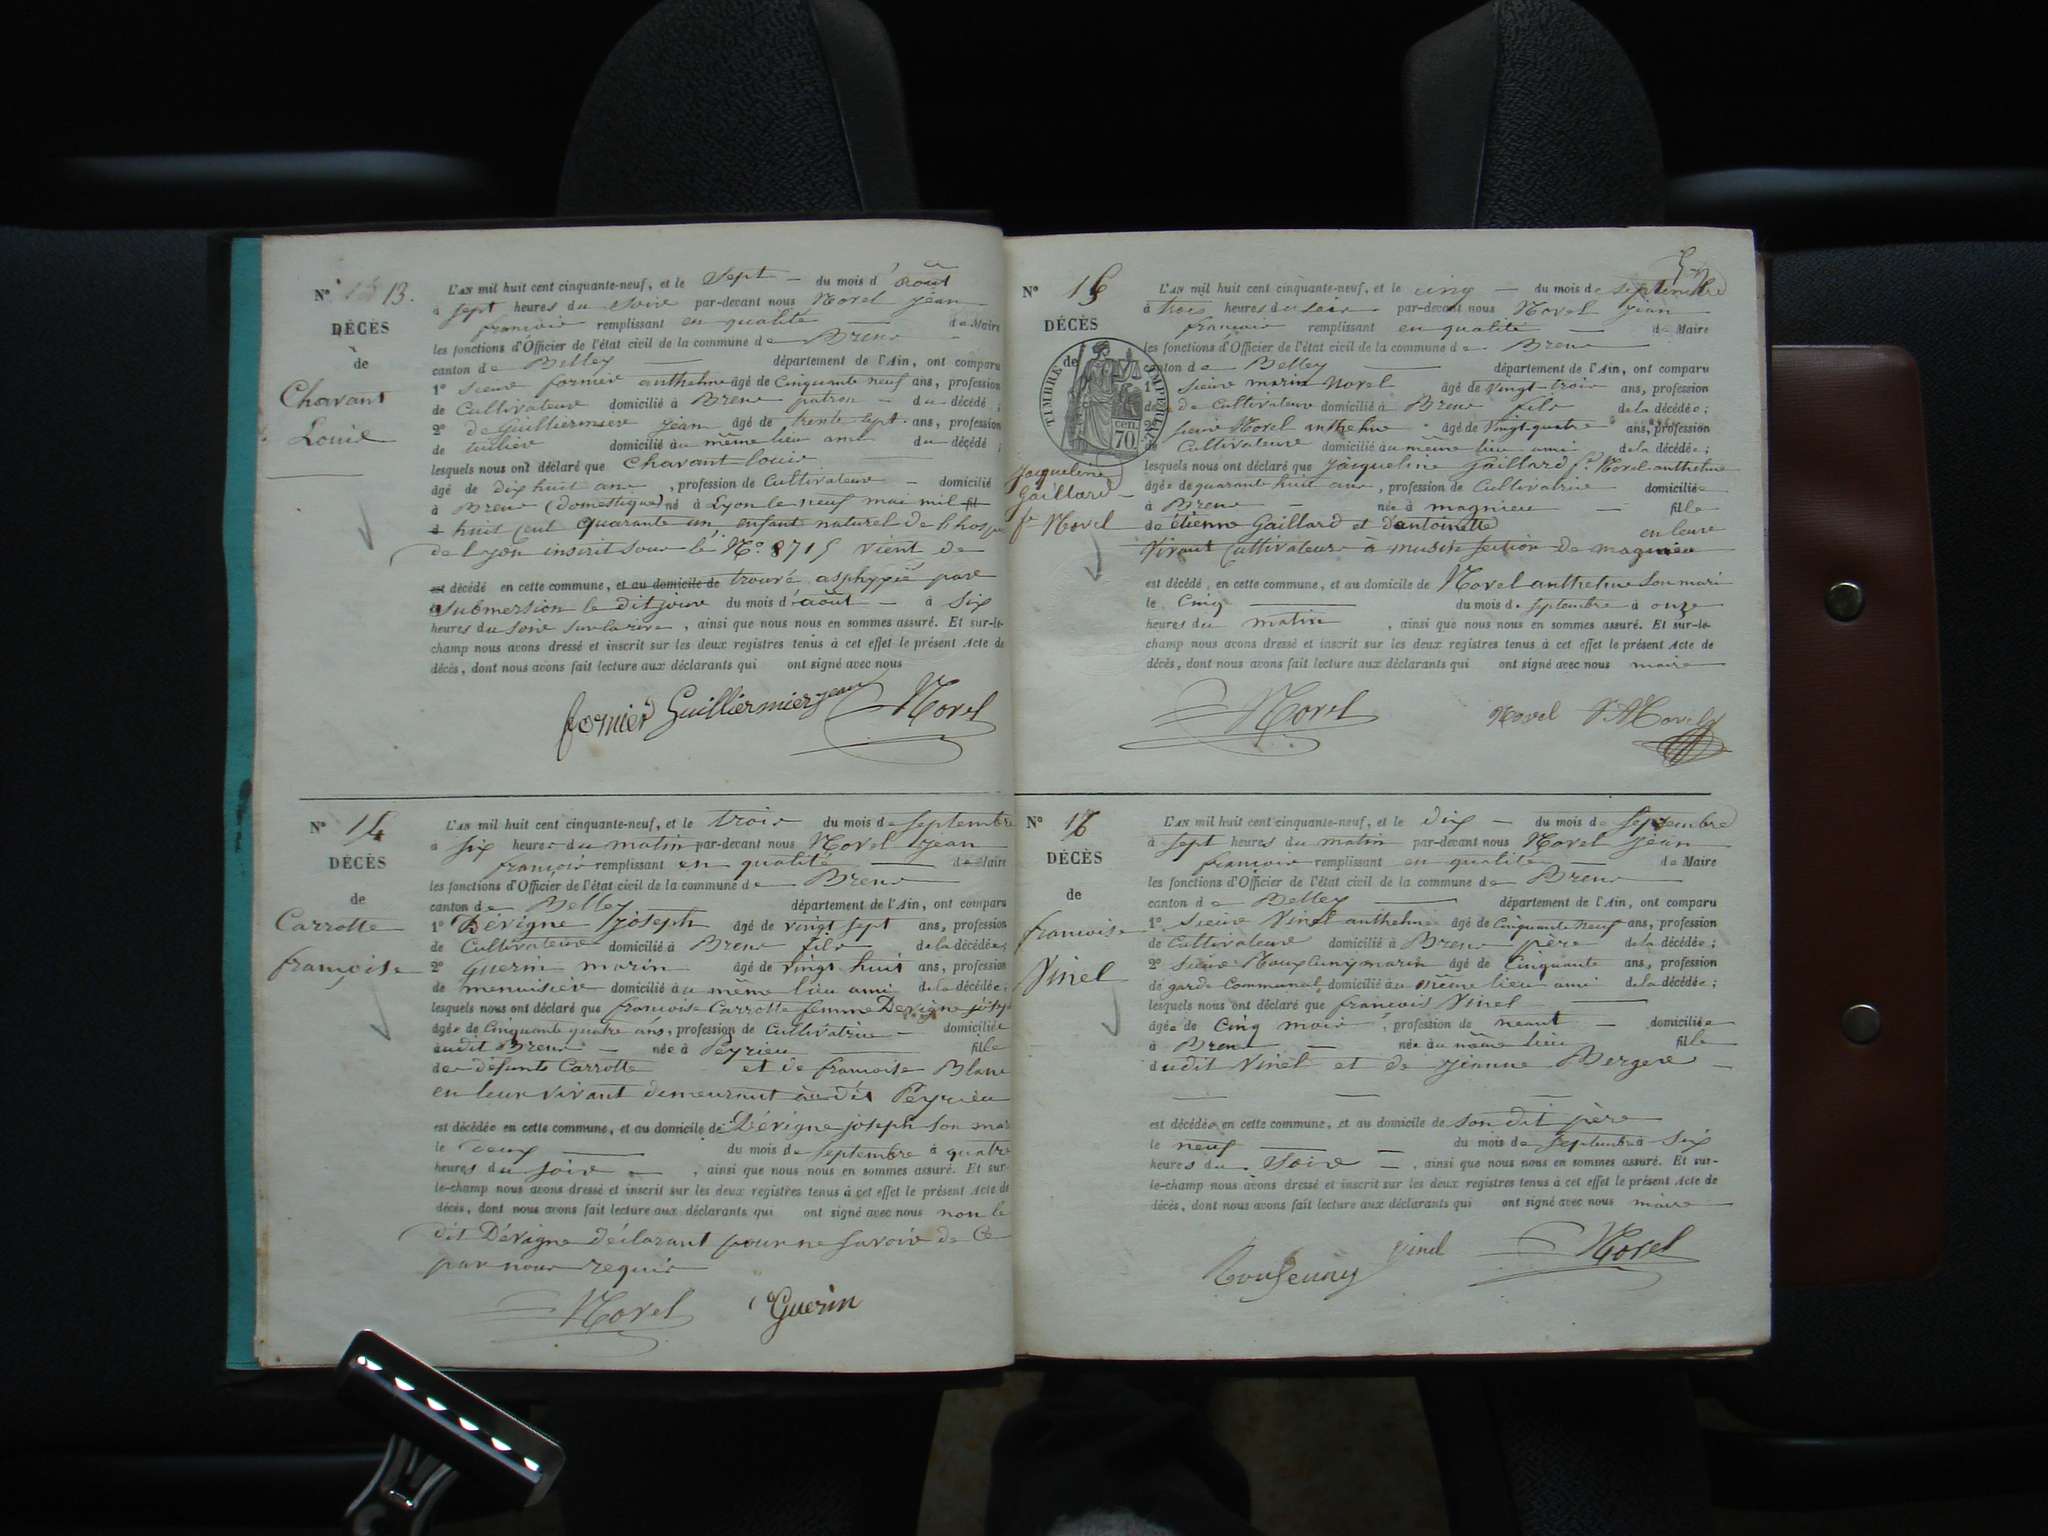 N° 13.
DÉCÈS
de
Chavant
Louis
L'AN mil huit cent cinquante-neuf, et le sept du mois d'août
à sept heures du soir par-devant nous Morel jean
françois remplissant en qualité de Maire
les fonctions d'Officier de l'état civil de la commune de Brens
canton de Belley département de l'Ain, ont comparu
1° Sieur fornier anthelme âgé de Cinquante neuf ans, profession
de Cultivateur domicilié à Brens patron du décédé;
2° de Guilliermier jean âgé de trente sept ans, profession
de domicilié au même lieu ami du décédé;
lesquels nous ont déclaré que Chavant louis
âgé de dix huit ans, profession de Cultivateur domicilié
à Brens (domestique) né à Lyon le neuf mai mil
huit Cent quarante un, enfant naturel de l'hospice
de Lyon inscrit sous le N° 8715 vient de
est décédé en cette commune, et au domicile de trouvé asphyxié par
submersion le dit jour du mois d'août à six
heures du soir sur la rive, ainsi que nous nous en sommes assuré. Et sur-le-
champ nous avons dressé et inscrit sur les deux registres tenus à cet effet le présent Acte de
décès, dont nous avons fait lecture aux déclarants qui ont signé avec nous
fornier Guilliermier jean Morel
N° 14
DÉCÈS
de
Carrotte
françoise
L'AN mil huit cent cinquante-neuf, et le trois du mois de septembre
à six heures du matin par-devant nous Morel jean
françois remplissant en qualité de Maire
les fonctions d'Officier de l'état civil de la commune de Brens
canton de Belley département de l'Ain, ont comparu
1° Dévigne joseph âgé de vingt sept ans, profession
de Cultivateur domicilié à Brens fils de la décédée;
2° Guerin marin âgé de vingt huit ans, profession
de menuisier domicilié au même lieu ami de la décédée;
lesquels nous ont déclaré que françoise Carrotte femme Devigne
âgée de Cinquante quatre ans, profession de Cultivatrice domiciliée
audit Brens née à Peyrieu fille
de défunts Carrotte et de françoise Blanc
en leur vivant demeurant au dit Peyrieu
est décédée en cette commune, et au domicile de Dévigne joseph son mari
le deux du mois de septembre à quatre
heures du soir, ainsi que nous nous en sommes assuré. Et sur-
le-champ nous avons dressé et inscrit sur les deux registres tenus à cet effet le présent Acte de
décès, dont nous avons fait lecture aux déclarants qui ont signé avec nous non le
dit Dévigne déclarant pour ne savoir de Ce
par nous requis
Morel Guerin
N° 15
DÉCÈS
de
TIMBRE IMPERIAL
70 cen.
Jacqueline
Gaillard
fe Morel
L'AN mil huit cent cinquante-neuf, et le cinq du mois de septembre
à trois heures du soir par-devant nous Morel jean
françois remplissant en qualité de Maire
les fonctions d'Officier de l'état civil de la commune de Brens
canton de Belley département de l'Ain, ont comparu
1° sieur marin Morel âgé de vingt-trois ans, profession
de Cultivateur domicilié à Brens fils de la décédée;
2° sieur Morel anthelme âgé de vingt-quatre ans, profession
de Cultivateur domicilié au même lieu ami de la décédée;
lesquels nous ont déclaré que jacqueline Gaillard fe Morel anthelme
âgée de quarante huit ans, profession de Cultivatrice domiciliée
à Brens née à magnieu fille
de étienne Gaillard et d'antoinette en leur
Vivant Cultivateurs à musin section de magnieu
est décédé, en cette commune, et au domicile de Morel anthelme son mari
le Cinq du mois de septembre à onze
heures du matin, ainsi que nous nous en sommes assuré. Et sur-le-
champ nous avons dressé et inscrit sur les deux registres tenus à cet effet le présent Acte de
décès, dont nous avons fait lecture aux déclarants qui ont signé avec nous maire
Morel Morel Morel
N° 16
DÉCÈS
de
françoise
Vinel
L'AN mil huit cent cinquante-neuf, et le dix du mois de septembre
à sept heures du matin par-devant nous Morel jean
françois remplissant en qualité de Maire
les fonctions d'Officier de l'état civil de la commune de Brens
canton de Belley département de l'Ain, ont comparu
1° Sieur Vinel anthelme âgé de Cinquante neuf ans, profession
de Cultivateur domicilié à Brens père de la décédée;
2° Sieur marin âgé de Cinquante ans, profession
de garde Communal domicilié au même lieu ami de la décédée;
lesquels nous ont déclaré que françoise Vinel
âgée de Cinq mois, profession de néant domiciliée
à Brens née au même lieu fille
dudit Vinel et de jeanne Berger
est décédée en cette commune, et au domicile de son dit père
le neuf du mois de septembre à six
heures du soir, ainsi que nous nous en sommes assuré. Et sur-
le-champ nous avons dressé et inscrit sur les deux registres tenus à cet effet le présent Acte de
décès, dont nous avons fait lecture aux déclarants qui ont signé avec nous maire
vinel Morel